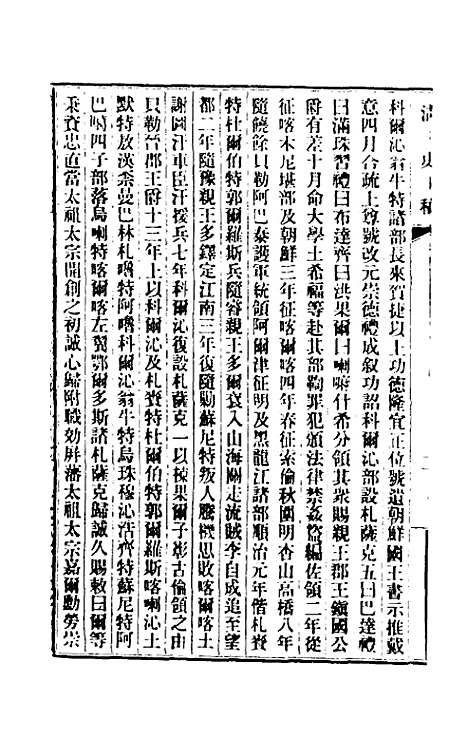 清史稿
科爾沁翁牛特諸部長來賀捷以上功德隆宜正位號遺朝鮮國王書示推戴
意四月合疏上尊號改元崇德禮成敘功詔科爾沁部設札薩克五曰巴達禮
曰滿珠習禮曰布達齊曰洪果爾曰喇嘛什希分領其眾賜親王郡王鎮國公
爵有差十月命大學士希福等赴其部鞫罪犯頒法律禁姦盜編佐領二年從
征喀木尼堪部及朝鮮三年征喀爾喀四年春征索倫秋圍明杏山高橋八年
隨饒餘貝勒阿巴泰護軍統領阿爾津征明及黑龍江諸部順治元年偕札賚
特杜爾伯特郭爾羅斯兵隨睿親王多爾袞入山海關走流賊李自成追至望
都二年隨豫親王多鐸定江南三年復隨勦蘇尼特叛人騰機思敗喀爾喀土
謝圖汗車臣汗援兵七年科爾沁復設札薩克一以棟果爾子彰吉倫領之由
貝勒晉郡王爵十三年上以科爾沁及札賚特杜爾伯特郭爾羅斯喀喇沁土
默特敖漢柰曼巴林札嚕特阿嚕科爾沁翁牛特烏珠穆沁浩齊特蘇尼特阿
巴噶四子部落烏喇特喀爾喀左翼鄂爾多斯諸札薩克歸誠久賜敕曰爾等
秉資忠直當太祖太宗開創之初誠心歸附職効屏藩太祖太宗嘉爾勳勞崇